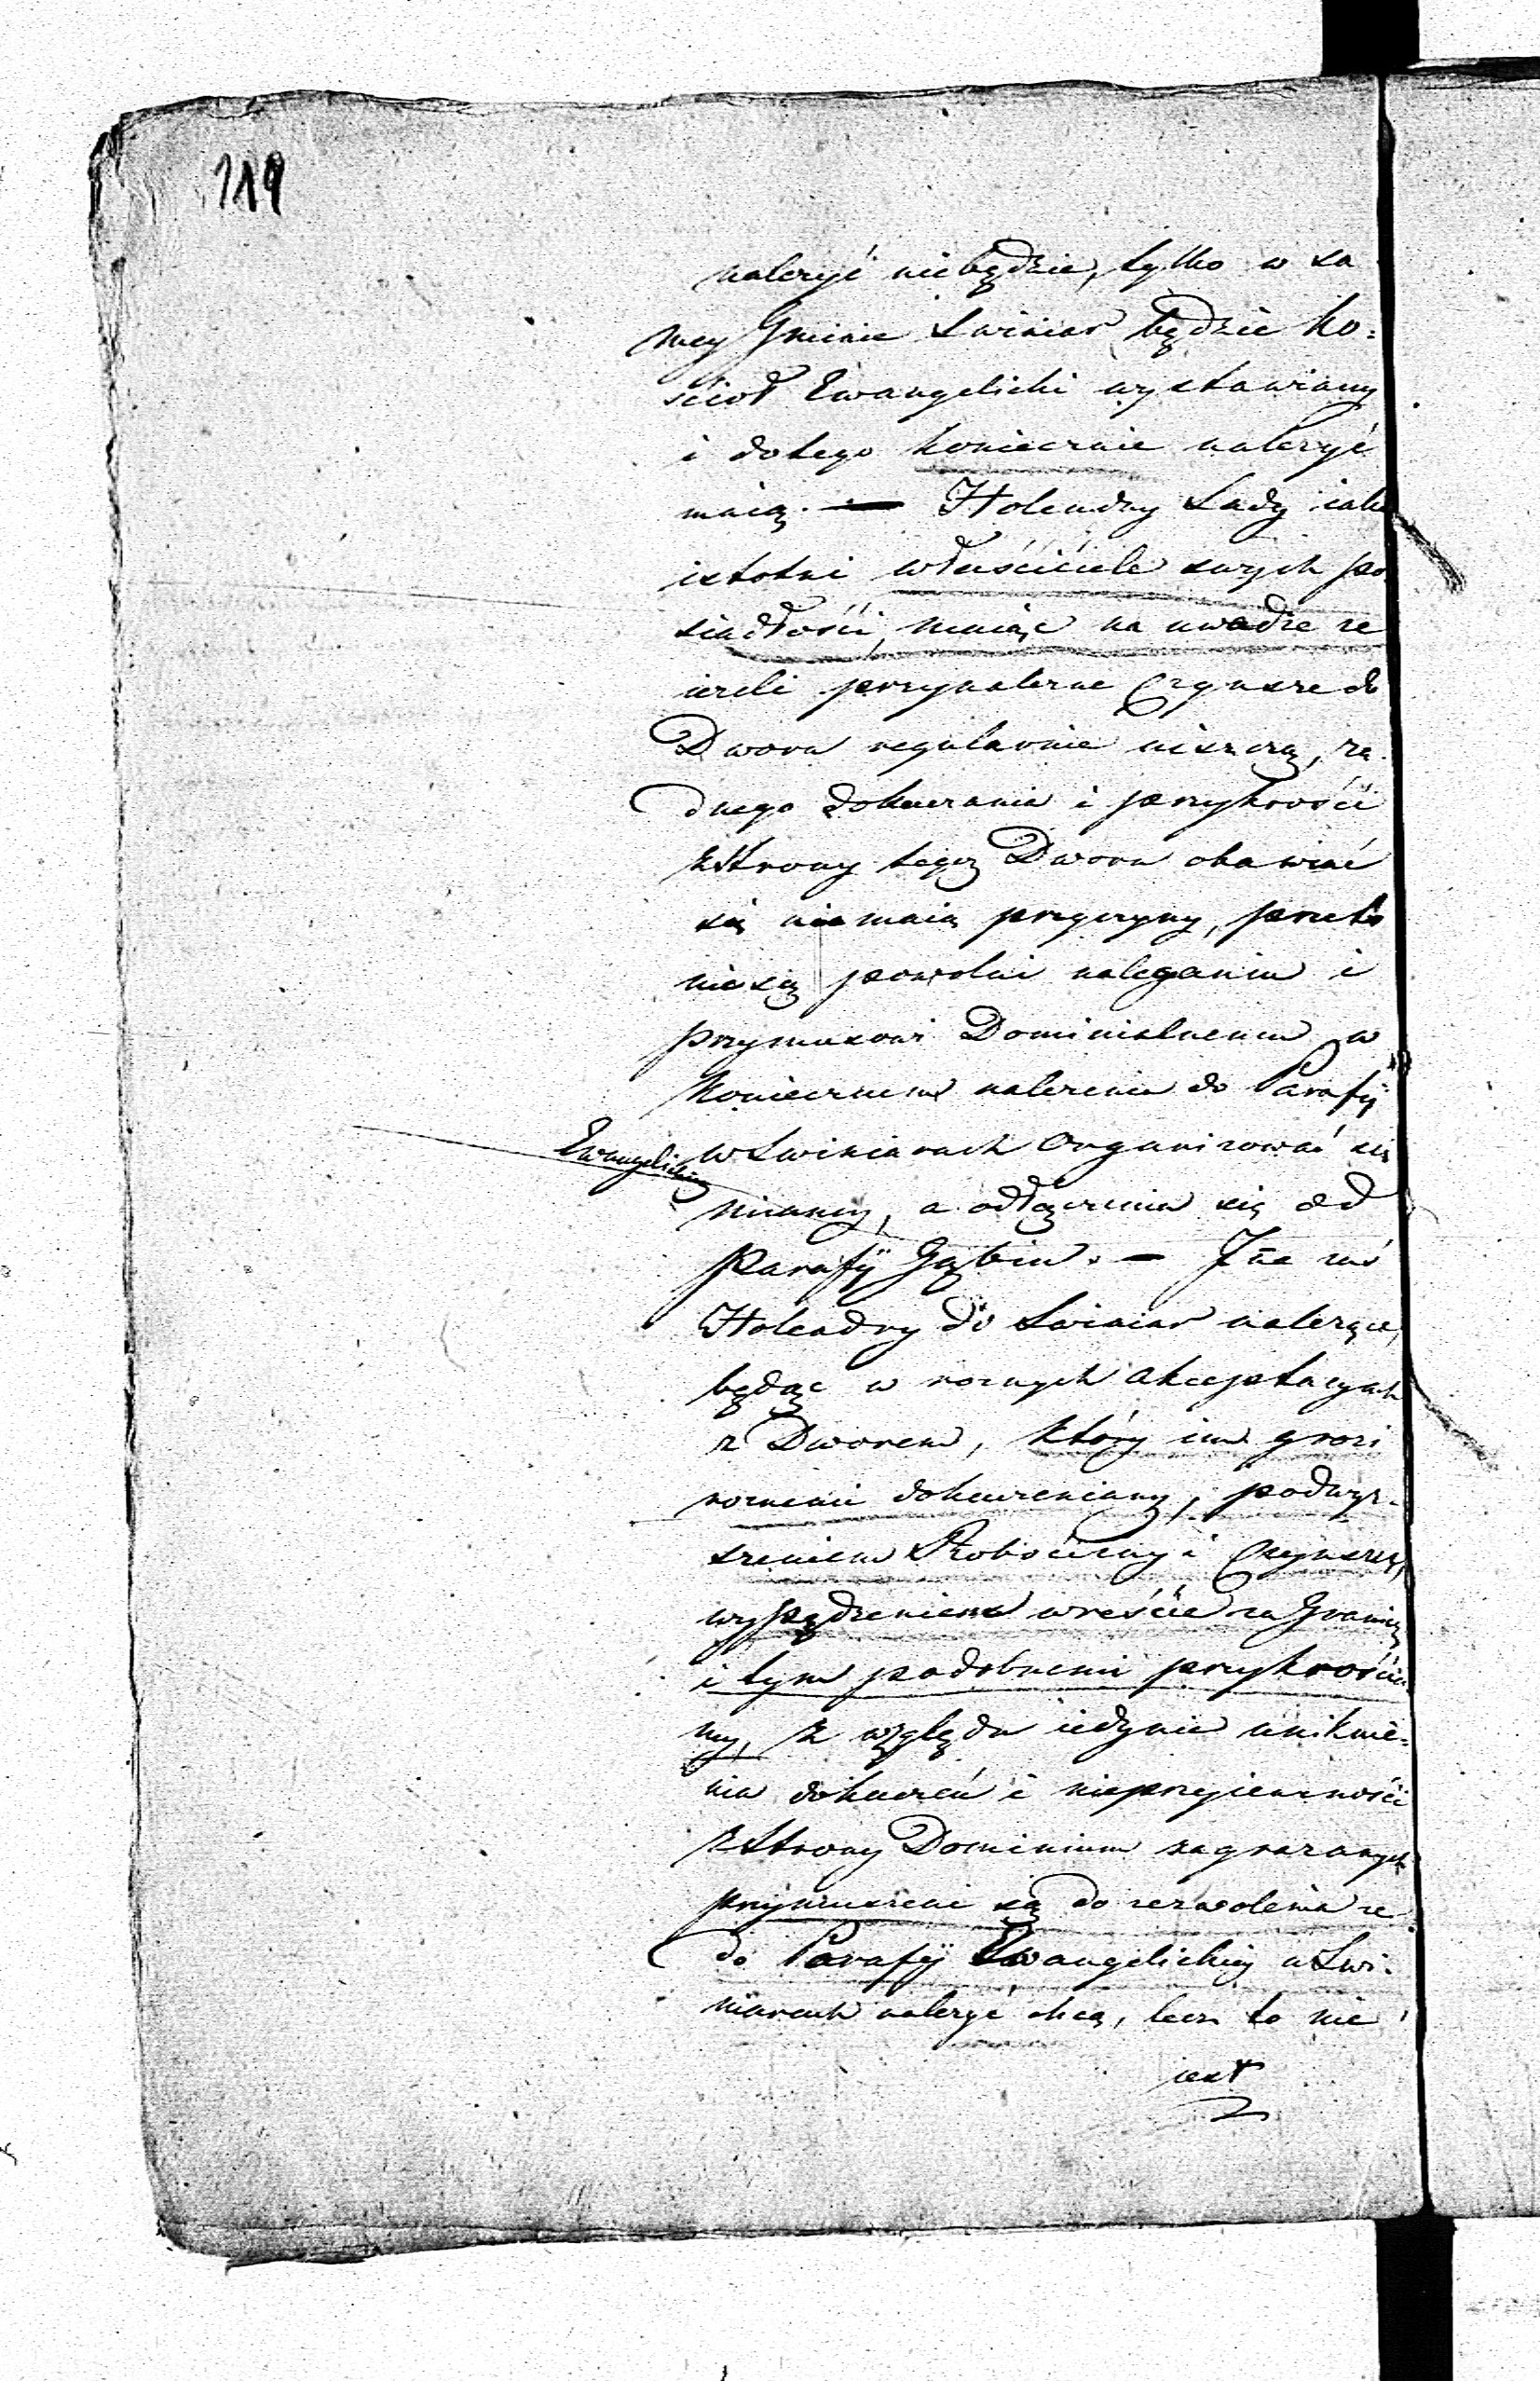 119
należyć niebędzie, tylko w sa
mey Gminie Swiniar będzie Ko=
ścioł Ewangelicki wystawiony
i dotego koniecznie należyć
maią. — Holendry Lady iako
istotni właściciele swych po
siadłości, maiąc na uwadze że
ieżeli przynależne Czynsze do
Dworu regularnie uiszczą, ża
dnego dokuczania i przykrości
zStrony tegoż Dworu obawiać
się niemaią przyczyny, przeto
niesą powolni naleganiu i
przymusowi Dominialnemu w
Koniecznem należeniu do Parafÿ
Ewangelickiey
wSwiniarach Organizować się
mianey, a odłączeniu się od
Parafÿ Gąbin. — Jñe zaś
Holendry do Swiniar należące,
będąc w roznych akceptacyach
z Dworem, który im grozi
roznemi dokuczeniamy, podwyż-
szeniem Robocizny i Czynszu,
wypędzeniem wreście za Granicę
i tym podobnemi przykrościa
my, z względu iedynie uniknie=
nia dokuczeń i nieprzyiemności
zStrony Dominium zagrażanych
przymuszeni są do zezwolenia że
do Parafÿ Ewangelickiey wSwi-
niarach należyć chcą, lecz to nie
iest